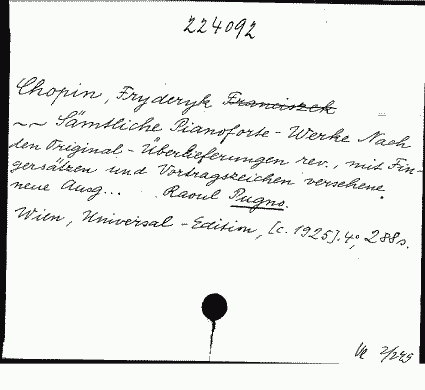 224092
Chopin, Fryderyk Franciszek
~~ Sämtliche Pianoforte-Werke Nach
den Original-Überlieferungen rev., mit Fin-
gersätzen und Vortragszeichen versehene
neue Ausg... Raoul Pugno.
Wien, Universal-Edition, [c. 1925]. 4°, 288s.
2/245